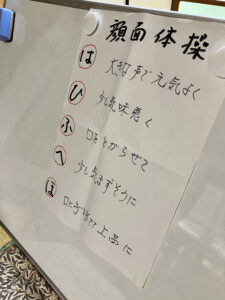 顔面体操
は 大きな声で元気よく
ひ 少し気味悪く
ふ 口をとがらせて
へ 少し気まずそうに
ほ 上品に